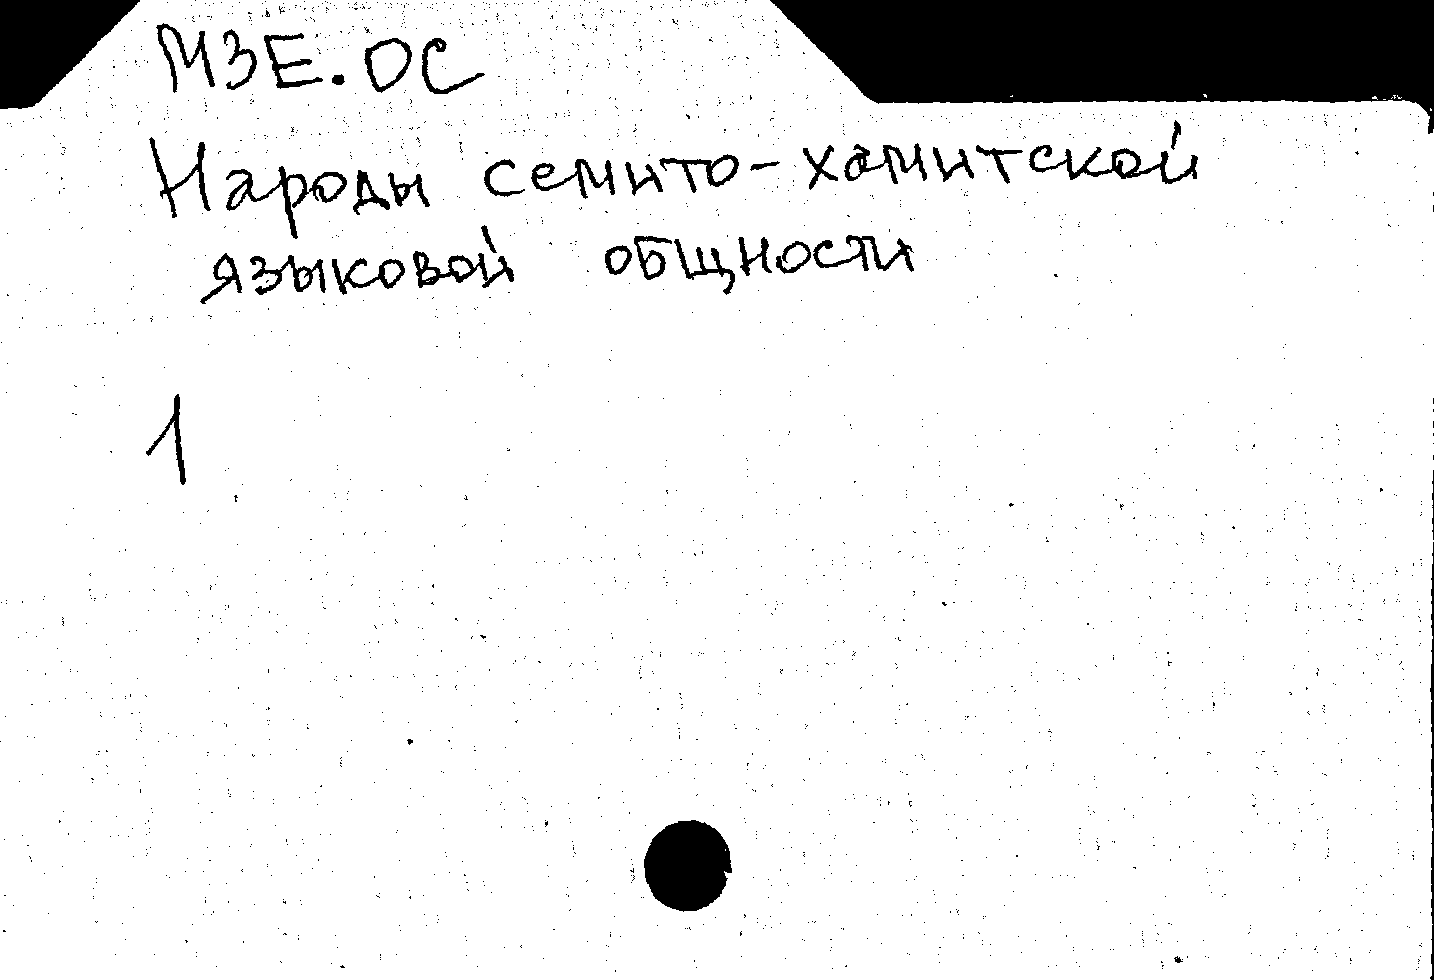 МЗЕ.ОС
Народы семито-хамитской
языковой общности
1